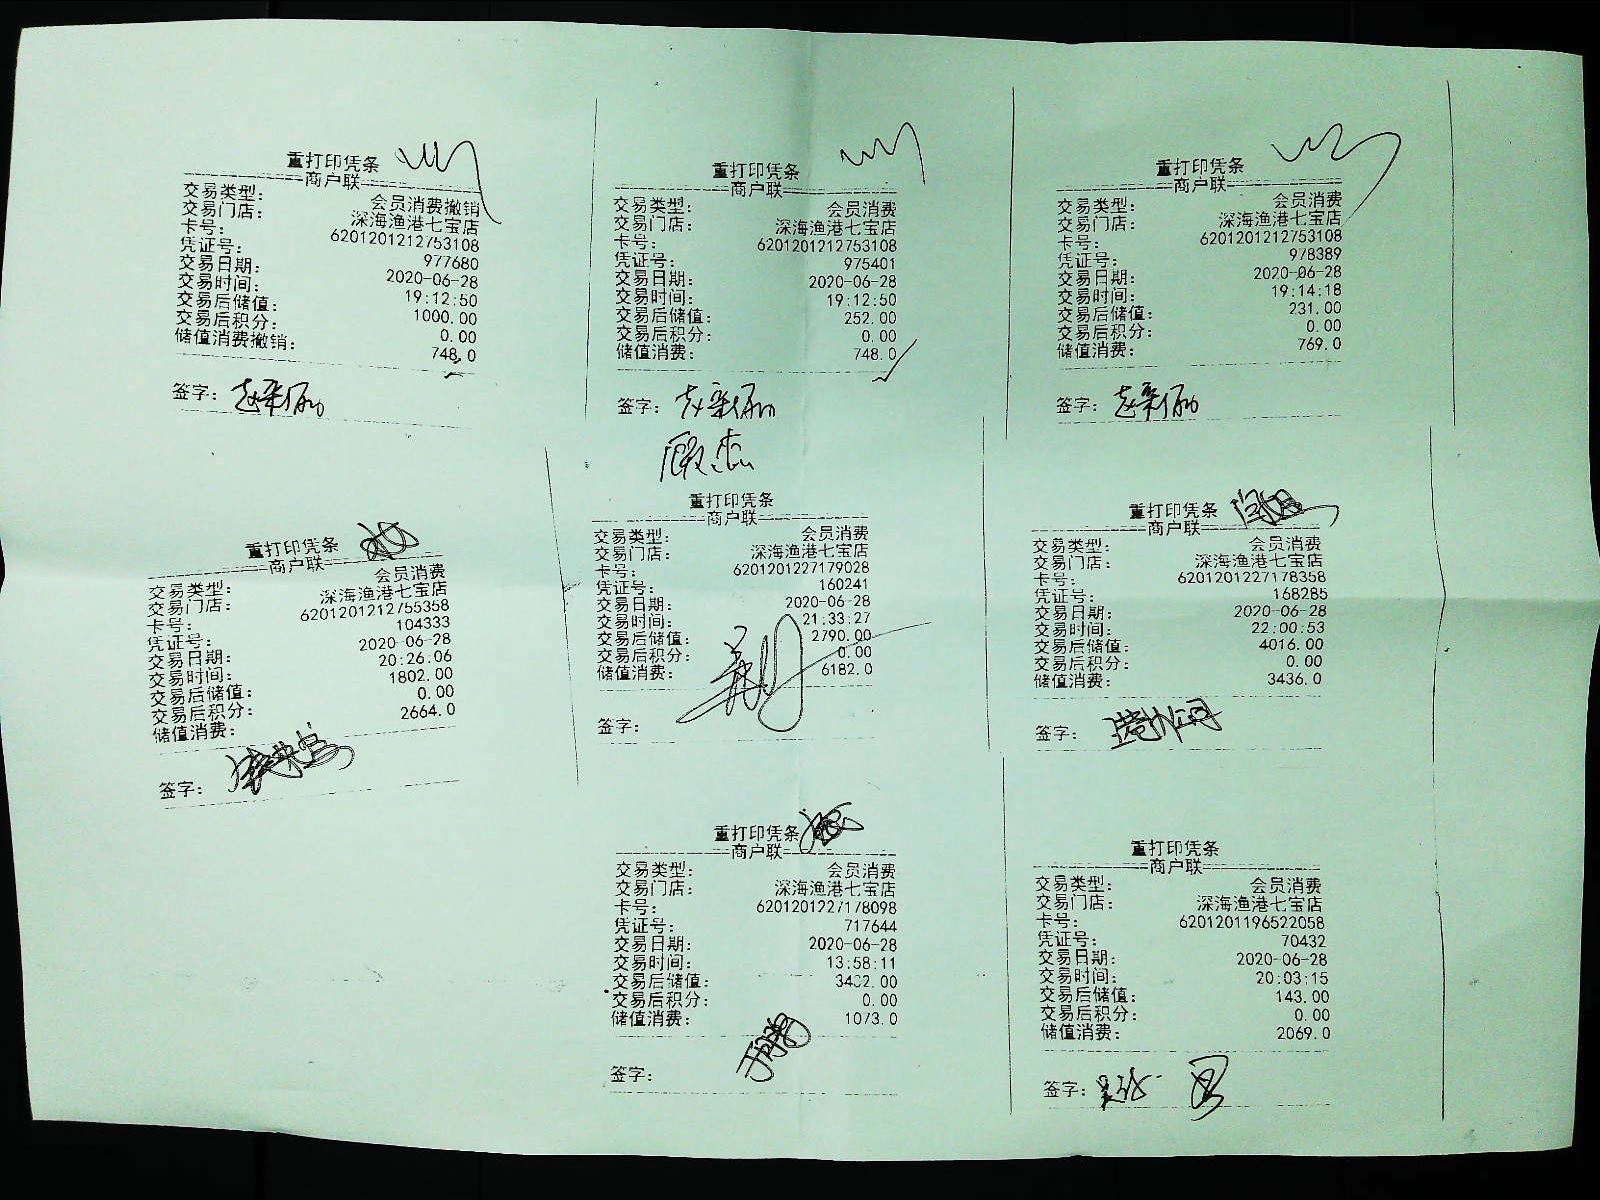 重打印凭条
商户联
交易类型: 会员消费撤销
交易门店: 深海渔港七宝店
卡号: 6201201212753108
凭证号: 977680
交易日期: 2020-06-28
交易时间: 19:12:50
交易后储值: 1000.00
交易后积分: 0.00
储值消费撤销: 748.0
签字:
重打印凭条
商户联
交易类型: 会员消费
交易门店: 深海渔港七宝店
卡号: 6201201212753108
凭证号: 975401
交易日期: 2020-06-28
交易时间: 19:12:50
交易后储值: 252.00
交易后积分: 0.00
储值消费: 748.0
签字:
重打印凭条
商户联
交易类型: 会员消费
交易门店: 深海渔港七宝店
卡号: 6201201212753108
凭证号: 978389
交易日期: 2020-06-28
交易时间: 19:14:18
交易后储值: 231.00
交易后积分: 0.00
储值消费: 769.0
签字:
重打印凭条
商户联
交易类型: 会员消费
交易门店: 深海渔港七宝店
卡号: 6201201212755358
凭证号: 104333
交易日期: 2020-06-28
交易时间: 20:26:06
交易后储值: 1802.00
交易后积分: 0.00
储值消费: 2664.0
签字:
顾杰
重打印凭条
商户联
交易类型: 会员消费
交易门店: 深海渔港七宝店
卡号: 6201201227179028
凭证号: 160241
交易日期: 2020-06-28
交易时间: 21:33:27
交易后储值: 2790.00
交易后积分: 0.00
储值消费: 6182.0
签字:
重打印凭条
商户联
交易类型: 会员消费
交易门店: 深海渔港七宝店
卡号: 6201201227178358
凭证号: 168285
交易日期: 2020-06-28
交易时间: 22:00:53
交易后储值: 4016.00
交易后积分: 0.00
储值消费: 3436.0
签字:
重打印凭条
商户联
交易类型: 会员消费
交易门店: 深海渔港七宝店
卡号: 6201201227178098
凭证号: 717644
交易日期: 2020-06-28
交易时间: 13:58:11
交易后储值:
交易后积分: 0.00
储值消费: 1073.0
签字:
重打印凭条
商户联
交易类型: 会员消费
交易门店: 深海渔港七宝店
卡号: 6201201196522058
凭证号: 70432
交易日期: 2020-06-28
交易时间: 20:03:15
交易后储值: 143.00
交易后积分: 0.00
储值消费: 2069.0
签字: